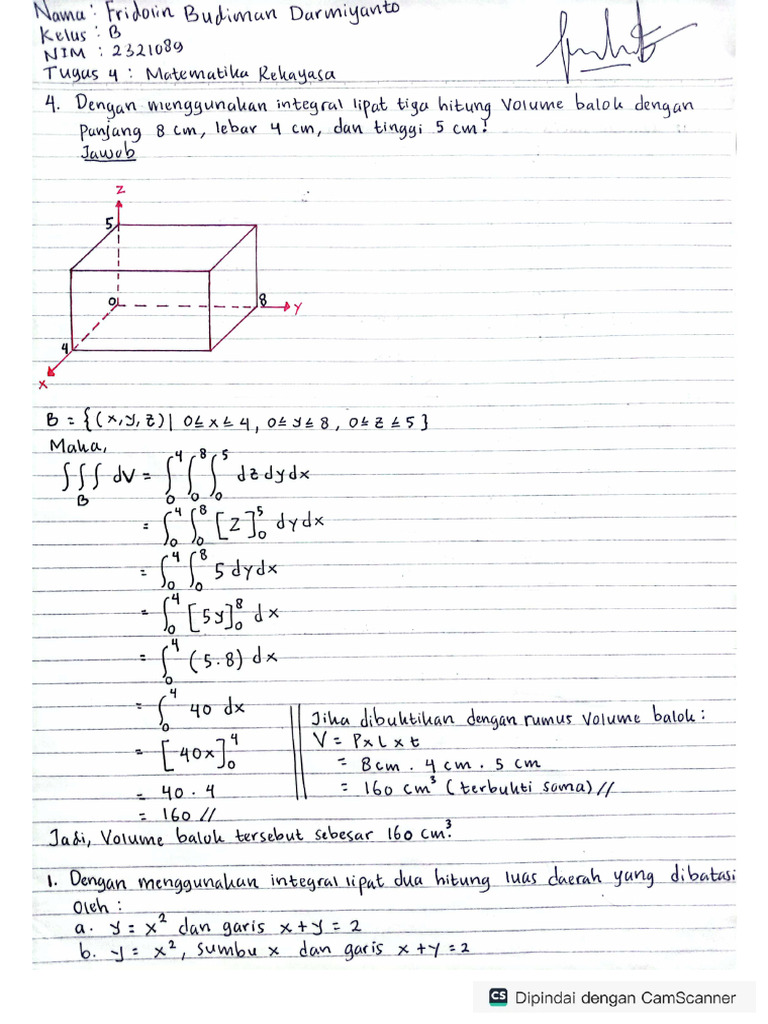 Nama : Fridolin Budiman Darmiyanto
Kelas : B
NIM : 2321089
Tugas 4 : Matematika Rekayasa
4. Dengan menggunakan integral lipat tiga hitung Volume balok dengan
panjang 8 cm, lebar 4 cm, dan tinggi 5 cm!
Jawab
z
5
0
8
y
4
x
B = {(x,y,z)| 0≤x≤4, 0≤y≤8, 0≤z≤5}
Maka,
∫∫∫_B dV = ∫_0^4 ∫_0^8 ∫_0^5 dz dy dx
= ∫_0^4 ∫_0^8 [z]_0^5 dy dx
= ∫_0^4 ∫_0^8 5 dy dx
= ∫_0^4 [5y]_0^8 dx
= ∫_0^4 (5.8) dx
= ∫_0^4 40 dx
= [40x]_0^4
= 40 . 4
= 160 //
Jika dibuktikan dengan rumus Volume balok :
V = P x L x t
= 8cm . 4 cm . 5 cm
= 160 cm³ (terbukti sama) //
Jadi, Volume balok tersebut sebesar 160 cm³.
1. Dengan menggunakan integral lipat dua hitung luas daerah yang dibatasi
oleh :
a. y = x² dan garis x + y = 2
b. y = x², sumbu x dan garis x + y = 2
CS Dipindai dengan CamScanner